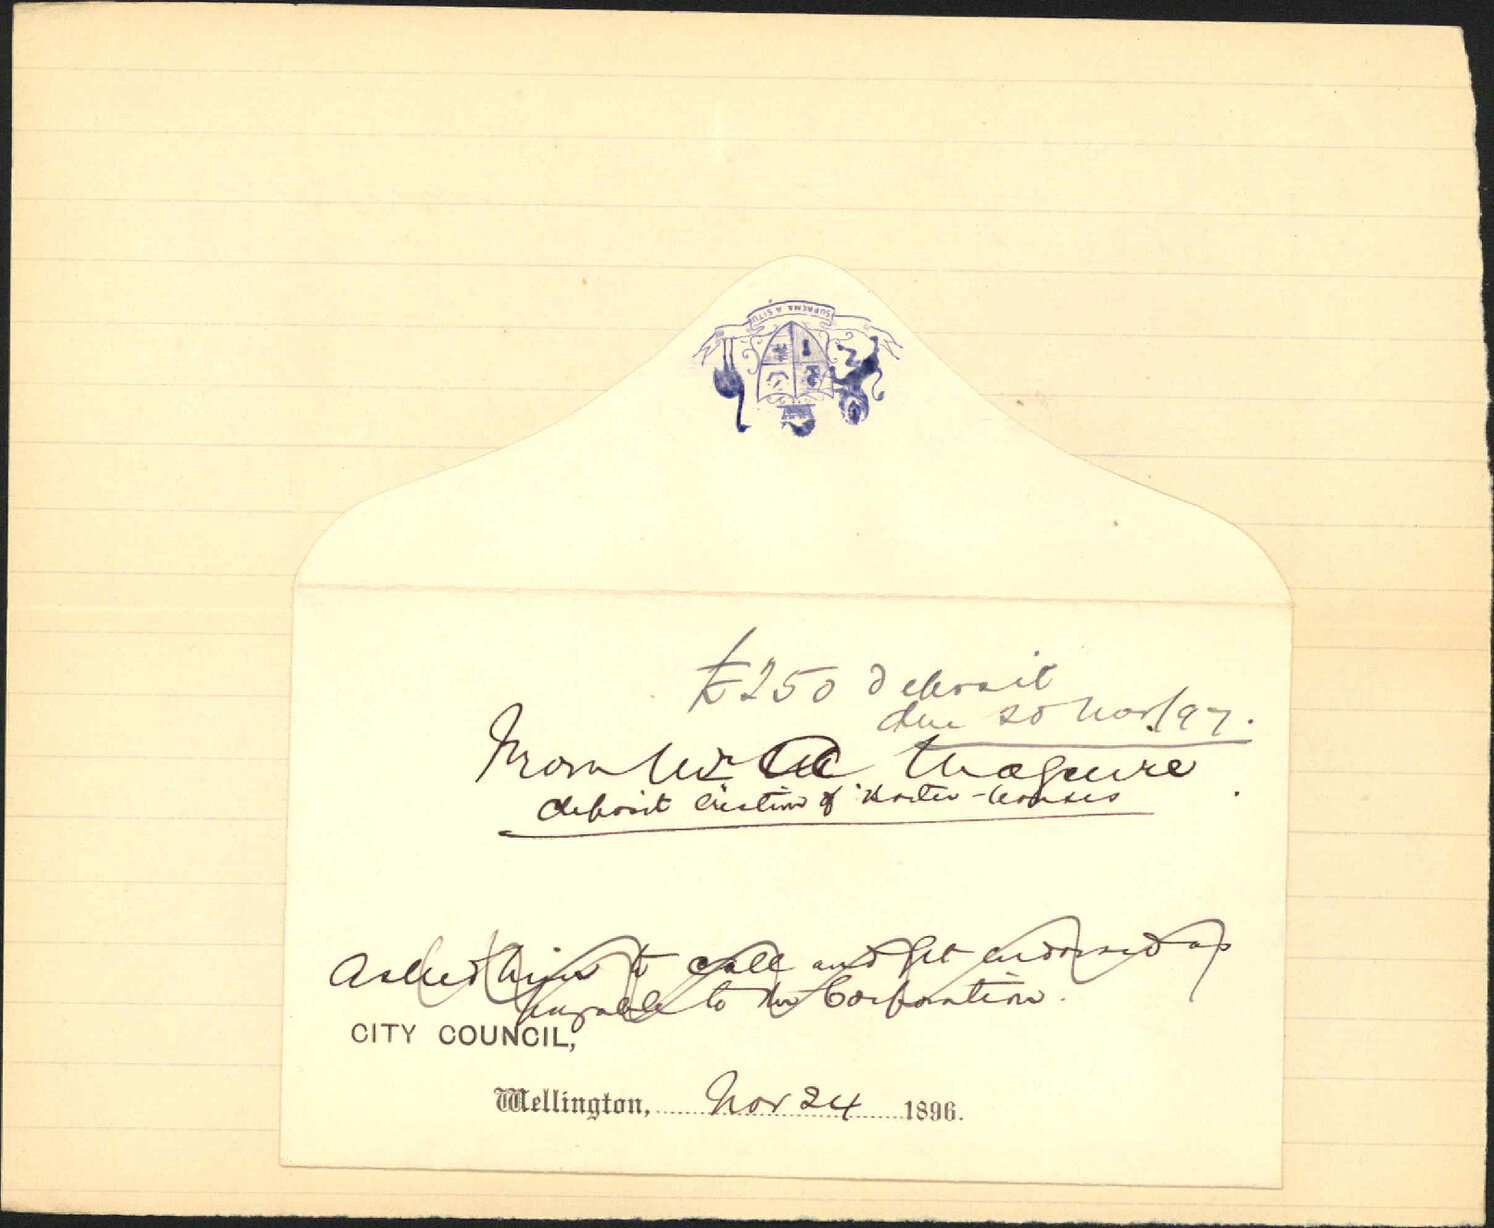 SUPREMA A SITU
£250 deposit
due 20 Nov/97.
From Mr Maguire
deposit erection of Workers-houses
Asked him to call and get endorsed as
payable to the Corporation.
CITY COUNCIL,
Wellington, Nov 24 1896.